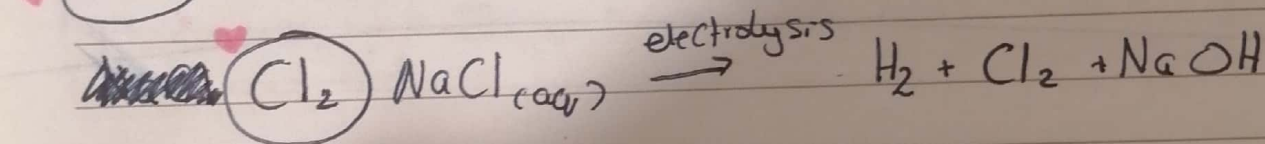 Cl₂ NaCl(aq) electrolysis → H₂ + Cl₂ + NaOH